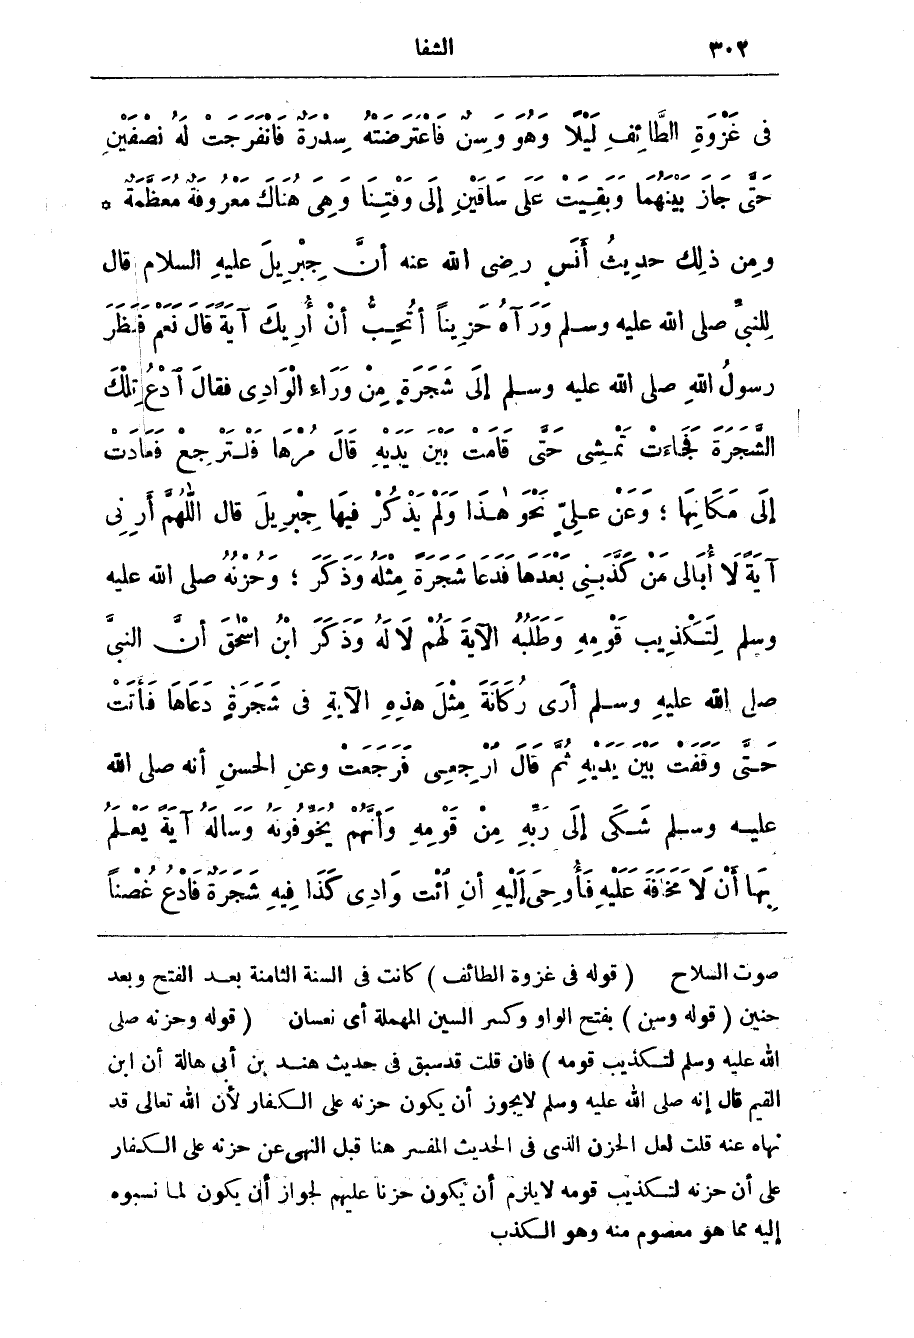 ٣٠٢ الشفا
فى غَزْوَةِ الطَّائِفِ لَيْلًا وَهُوَ وَسِنٌ فَاعْتَرَضَتْهُ سِدْرَةٌ فَانْفَرَجَتْ لَهُ نِصْفَيْنِ
حَتَّى جَازَ بَيْنَهُمَا وَبَقِيَتْ عَلَى سَاقَيْنِ إِلَى وَقْتِنَا وَهِىَ هُنَاكَ مَعْرُوفَةٌ مُعَظَّمَةٌ *
ومِن ذٰلِكَ حديثُ أَنَسٍ رضى الله عنه أنَّ جِبْرِيلَ عليهِ السلام قال
لِلنبىِّ صلى الله عليه وسلم وَرَآهُ حَزِيناً أتُحِبُّ أنْ أُرِيَكَ آيَةً قَالَ نَعَمْ فَنَظَرَ
رسولُ اللهِ صلى الله عليه وسلم إلَى شَجَرَةٍ مِنْ وَرَاءِ الْوَادِى فقالَ ادْعُ تِلْكَ
الشَّجَرَةَ فَجَاءَتْ تَمْشِى حَتَّى قَامَتْ بَيْنَ يَدَيْهِ قَالَ مُرْهَا فَلْتَرْجِعْ فَعَادَتْ
إلَى مَكَانِهَا ؛ وَعَنْ عَلِىٍّ نَحْوُ هٰذَا وَلَمْ يَذْكُرْ فِيهَا جِبْرِيلَ قال اللّٰهُمَّ أَرِنِى
آيَةً لَا أُبَالى مَنْ كَذَّبَنِى بَعْدَهَا فَدَعَا شَجَرَةً مِثْلَهُ وَذَكَرَ ؛ وَحُزْنُهُ صلى الله عليه
وسلم لِتَكْذِيبِ قَوْمِهِ وَطَلَبُهُ الآيَةَ لَهُمْ لَا لَهُ وَذَكَرَ ابْنُ اسْحٰقَ أنَّ النبىَّ
صلى الله عليهِ وسلم أَرَى رُكَانَةَ مِثْلَ هذِهِ الآيَةِ فى شَجَرَةٍ دَعَاهَا فَأَتَتْ
حَتَّى وَقَفَتْ بَيْنَ يَدَيْهِ ثُمَّ قَالَ ارْجِعِى فَرَجَعَتْ وعن الحسنِ أنه صلى الله
عليه وسلم شَكَى إلَى رَبِّهِ مِنْ قَوْمِهِ وَأَنَّهُمْ يُخَوِّفُونَهُ وَسَأَلَهُ آيَةً يَعْلَمُ
بِهَا أَنْ لَا مَخَافَةَ عَلَيْهِ فَأُوحِىَ إلَيْهِ أنِ ائْتِ وَادِى كَذَا فِيهِ شَجَرَةٌ فَادْعُ غُصْناً
صوت السلاح ( قوله فى غزوة الطائف ) كانت فى السنة الثامنة بعد الفتح وبعد
حنين ( قوله وسن ) بفتح الواو وكسر السين المهملة أى نعسان ( قوله وحزنه صلى
الله عليه وسلم لتكذيب قومه ) فان قلت قدسبق فى حديث هند بن أبى هالة أن ابن
القيم قال إنه صلى الله عليه وسلم لايجوز أن يكون حزنه على الكفار لأن الله تعالى قد
نهاه عنه قلت لعل الحزن الذى فى الحديث المفسر هنا قبل النهى عن حزنه على الكفار
على أن حزنه لتكذيب قومه لايلزم أن يكون حزنا عليهم لجواز أن يكون لما نسبوه
إليه مما هو معصوم منه وهو الكذب